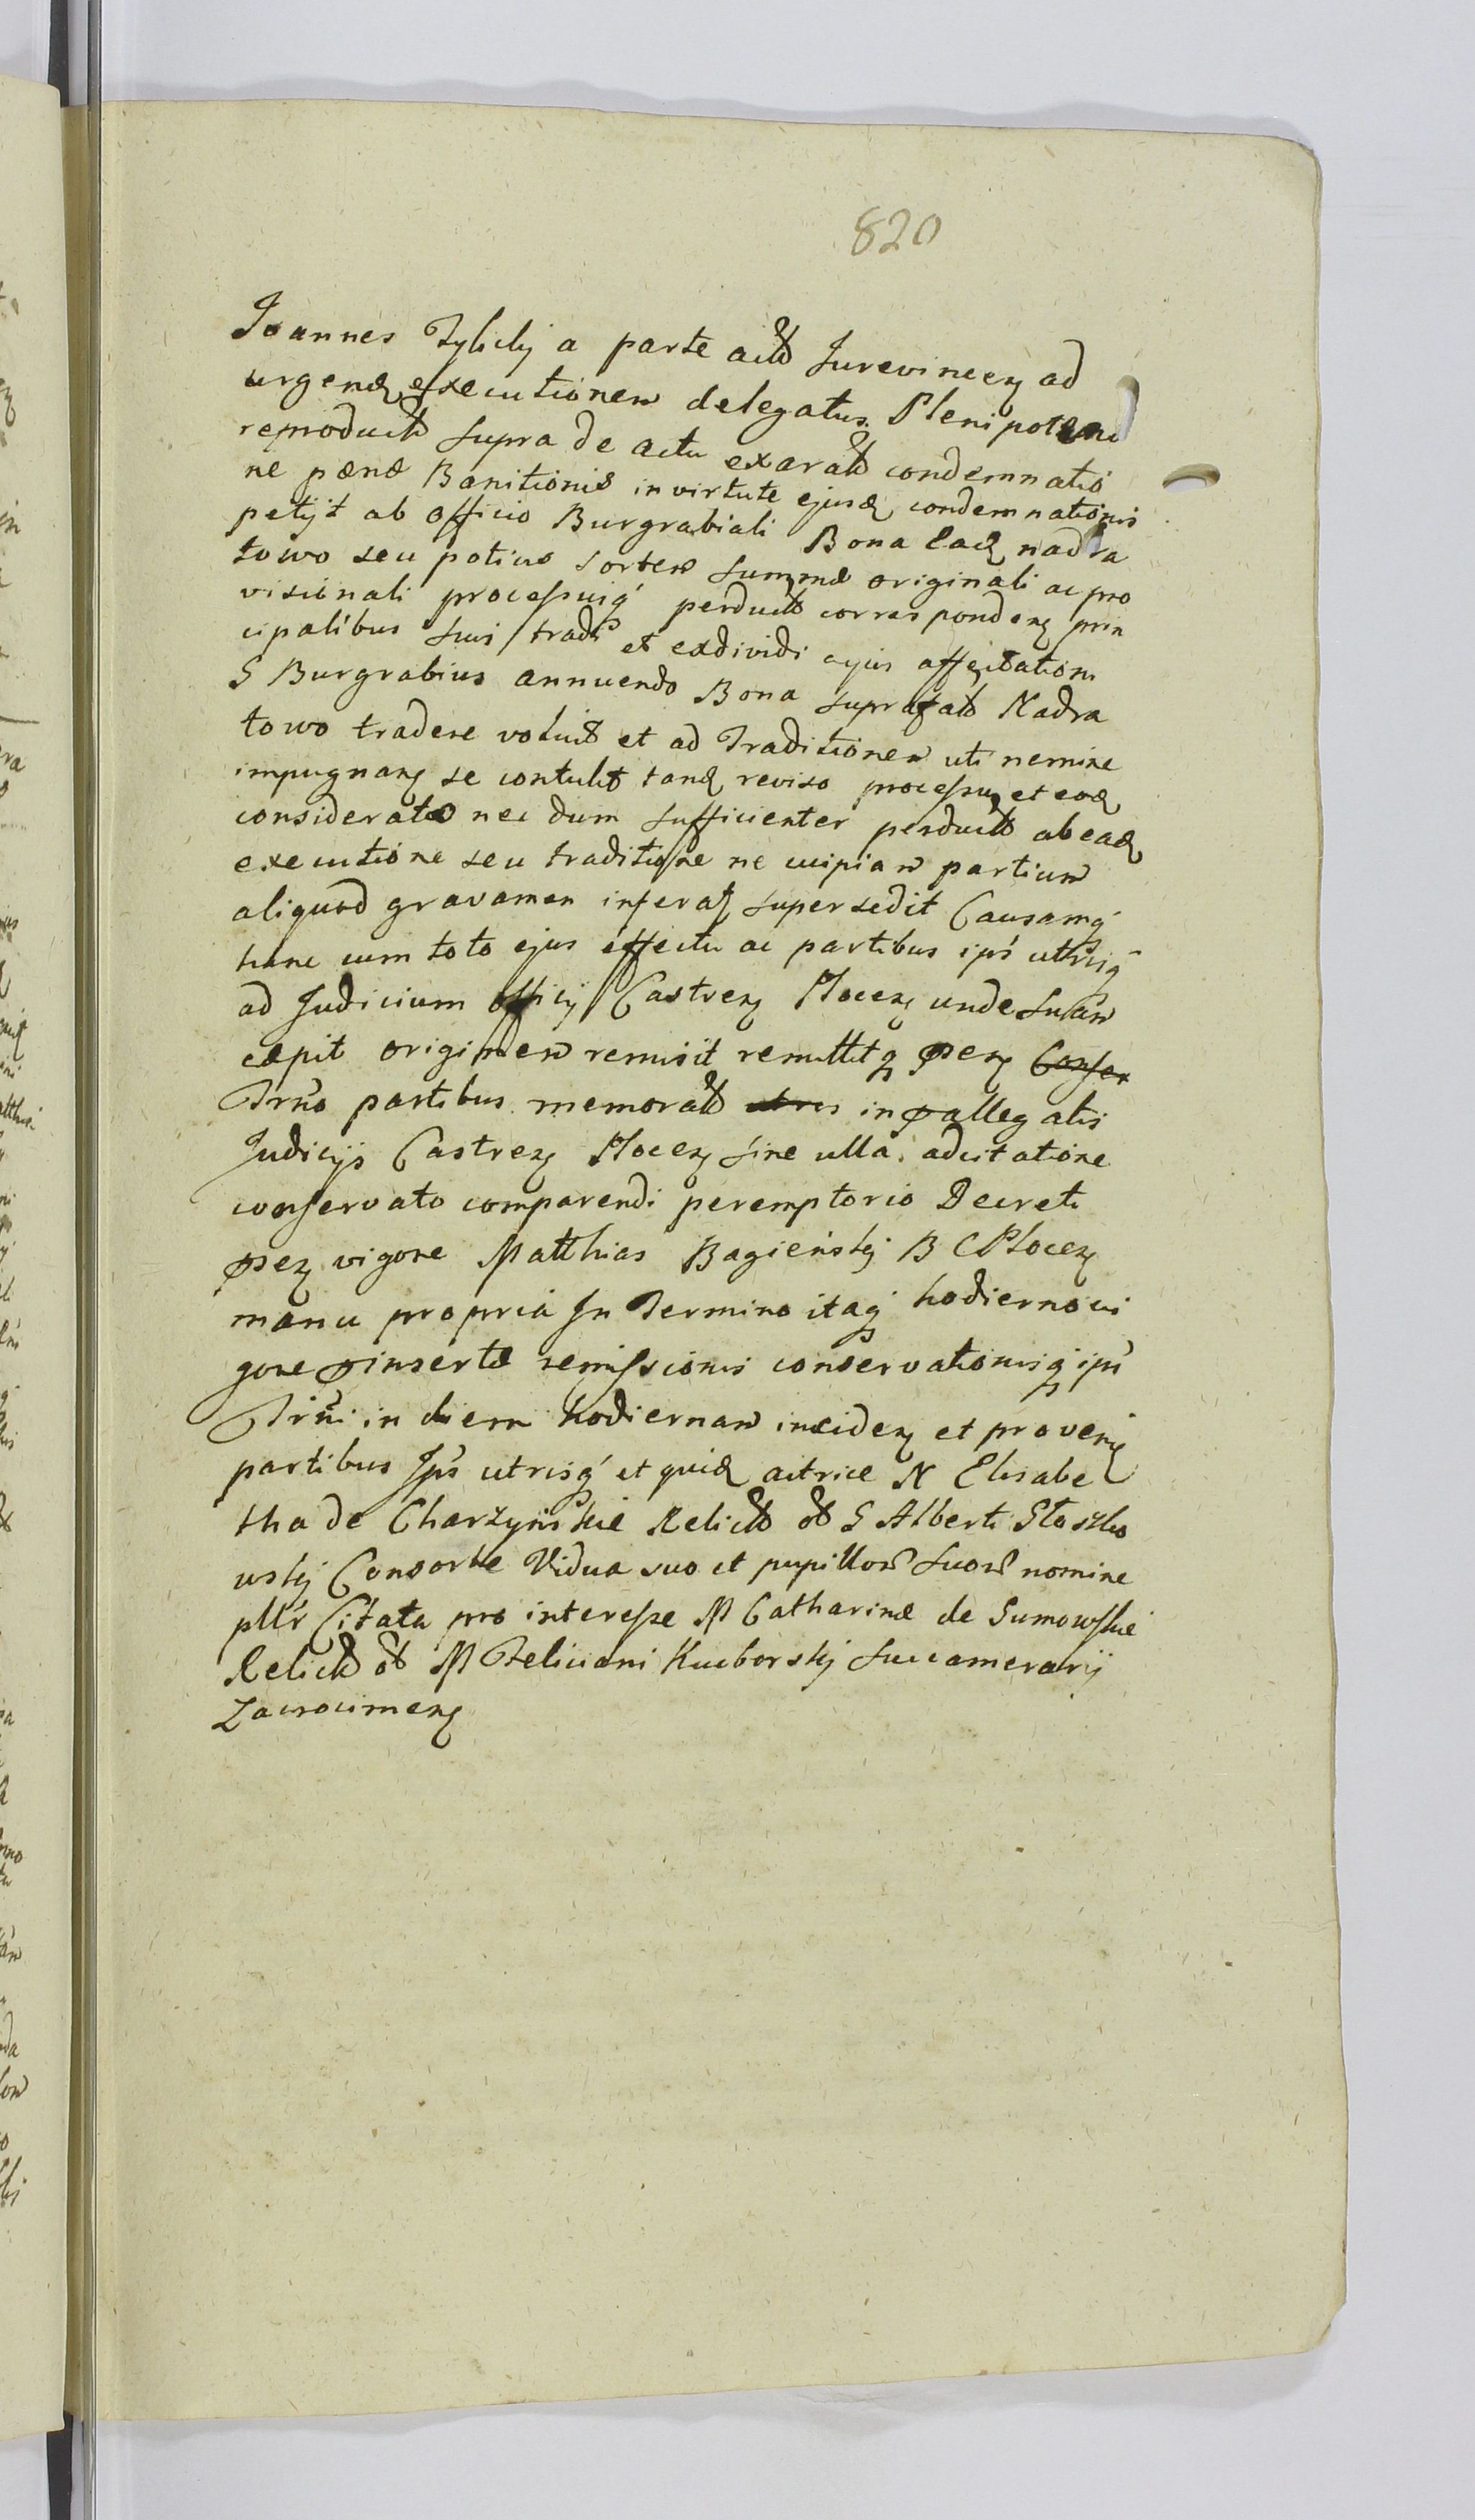 820
Joannes Zylicki a parte act Jurevincen ad
urgend executionem delegatus Plenipotens
reproducta supra de actu exarat condemnatio
ne pænæ Banitionis in virtute ejusd condemnationis
petijt ab officio Burgrabiali Bona ead nadra
towo seu potius sortem summæ originali ac pro
visionali processuiq perduct correspondens prin
cipalibus suis tradi et exdividi cujus affectationi
S Burgrabius annuendo Bona suprafat Nadra
towo tradere voluit et ad Traditionem uti nemine
impugnan se contulit tand reviso processu et eod
considerato nec dum sufficienter perducto ab ead
executione seu traditione ne cuipiam partium
aliquod gravamen inferat supersedit Causamq
hanc cum toto ejus effectu ac partibus ips utrisq
ad Judicium officij Castren Plocen unde suam
cæpit originem remisit remittitq præsen
Trno partibus memorat in præallegatis
Judicijs Castren Plocen sine ulla adcitatione
conservato comparendi peremptorio Decreti
præsen vigore Matthias Bagieński B C Plocen
manu propria In Termino itaq hodierno vi
gore præinsertæ remissionis conservationisq ips
Trni in diem hodiernam inciden et provenien
partibus Ips utrisq et quid actrice N Elisabe
tha de Charzyńskie Relict olt S Alberti Stoszko
wskj Consorte Vidua suo et pupillor suor nomine
pltr Citata pro interesse M Catharinæ de Sumowskie
Relict olt M Feliciani Kuciborskj Succamerarij
Zacrocimen